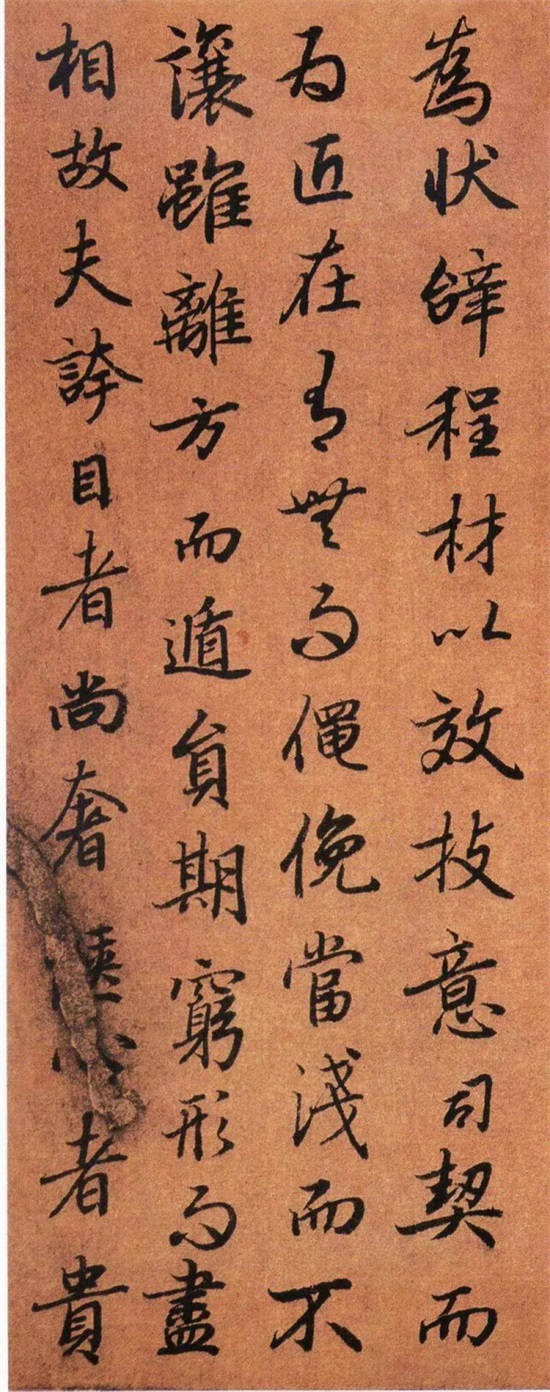 為状辝程材以效技意司契而
為匠在有無而僶俛當淺而不
讓雖離方而遁員期窮形而盡
相故夫誇目者尚奢心者貴